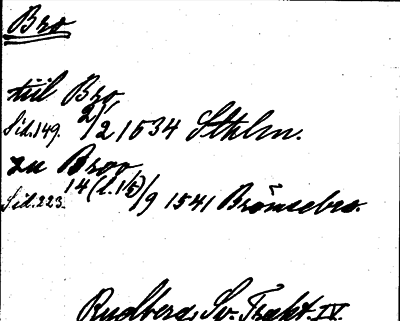 Bro
till Bro
Sid. 149. 2/2 1534 Sthlm.
zu Broo
Sid. 223. 14 (l. 15)/9 1541 Brömsebro.
Rydberg, Sv. Trakt. IV.